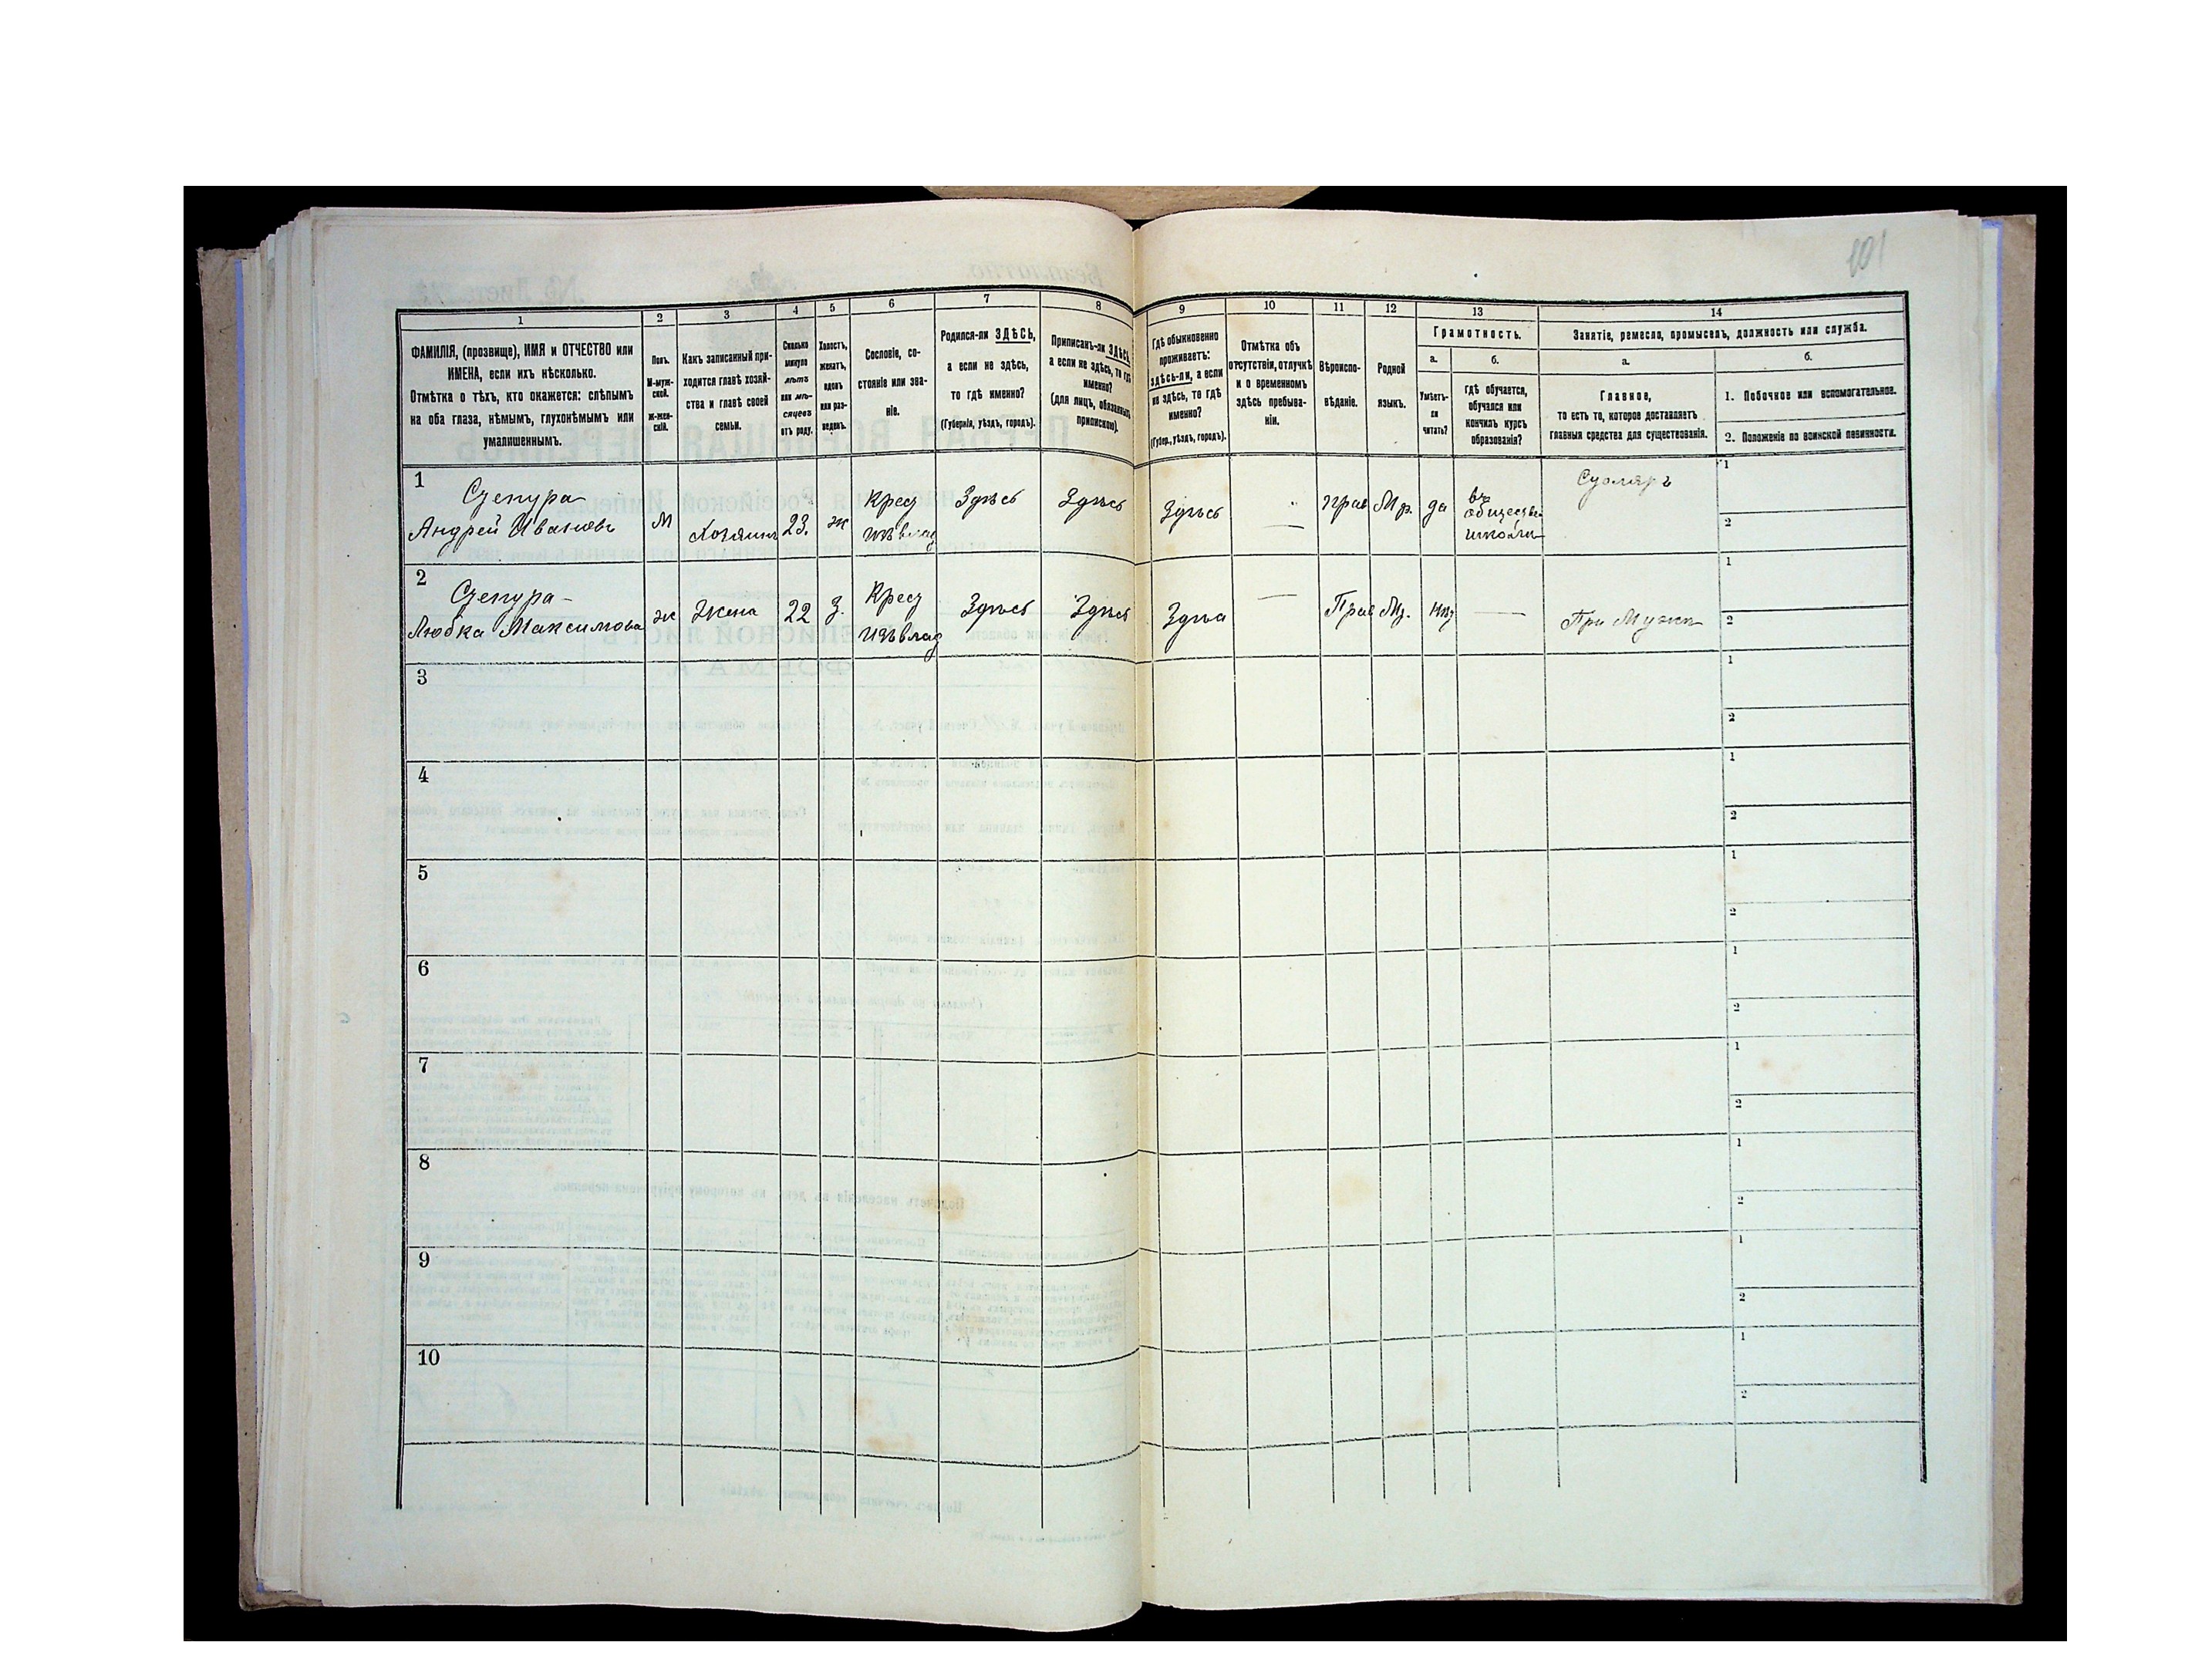 101
1
2
3
4
5
6
7
8
9
10
11
12
13
14
ФАМИЛІЯ, (прозвище), ИМЯ и ОТЧЕСТВО или
ИМЕНА, если ихъ нѣсколько.
Отмѣтка о тѣхъ, кто окажется: слѣпымъ
на оба глаза, нѣмымъ, глухонѣмымъ или
умалишеннымъ.
Полъ.
М-муж-
ской.
ж-жен-
скій.
Какъ записанный при-
ходится главѣ хозяй-
ства и главѣ своей
семьи.
Сколько
минуло
лѣтъ
или мѣ-
сяцевъ
отъ роду.
Холостъ,
женатъ,
вдовъ
или раз-
веденъ.
Сословіе, со-
стояніе или зва-
ніе.
Родился-ли ЗДѢСЬ,
а если не здѣсь,
то гдѣ именно?
(Губернія, уѣздъ, городъ).
Приписанъ-ли ЗДѢСЬ,
а если не здѣсь, то гдѣ
именно?
(для лицъ, обязанныхъ
припискою).
Гдѣ обыкновенно
проживаетъ:
здѣсь-ли, а если
не здѣсь, то гдѣ
именно?
(Губер., уѣздъ, городъ).
Отмѣтка объ
отсутствіи, отлучкѣ
и о временномъ
здѣсь пребыва-
ніи.
Вѣроиспо-
вѣданіе.
Родной
языкъ.
Грамотность.
а.
б.
Умѣетъ-
ли
читать?
гдѣ обучается,
обучался или
кончилъ курсъ
образованія?
Занятіе, ремесло, промыселъ, должность или служба.
а.
б.
Главное,
то есть то, которое доставляетъ
главныя средства для существованія.
1. Побочное или вспомогательное.
2. Положеніе по воинской повинности.
1
Андрей Ивановъ
М
Хозяинъ
23.
ж
Крест
изъ влад
Здѣсь
Здѣсь
Здѣсь
—
прав
Мр.
да
въ
обществен
школи
Столяръ
1
2
2
Любка Максимова
ж
Жена
22
З.
Крест
изъ влад
Здѣсь
Здѣсь
—
Прав
Мр.
нѣт
—
При Мужѣ
1
2
3
1
2
4
1
2
5
1
2
6
1
2
7
1
2
8
1
2
9
1
2
10
1
2